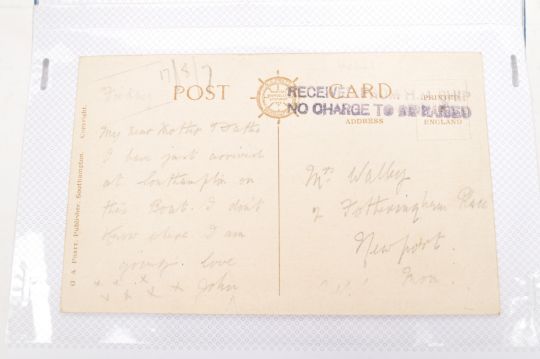 17/8/7
Friday
POST CARD
RECEIVED FROM H.M. SHIP
NO CHARGE TO BE RAISED
PRINTED
ENGLAND
ADDRESS
G A Pratt, Publisher, Southampton. Copyright.
My dear Mother &
I have just arrived
at Southampton on
this Boat. I don't
know where I am
going. Love
x x x x x x John
Mrs Walley
2 Fotheringham Place
Newport.
Mon.